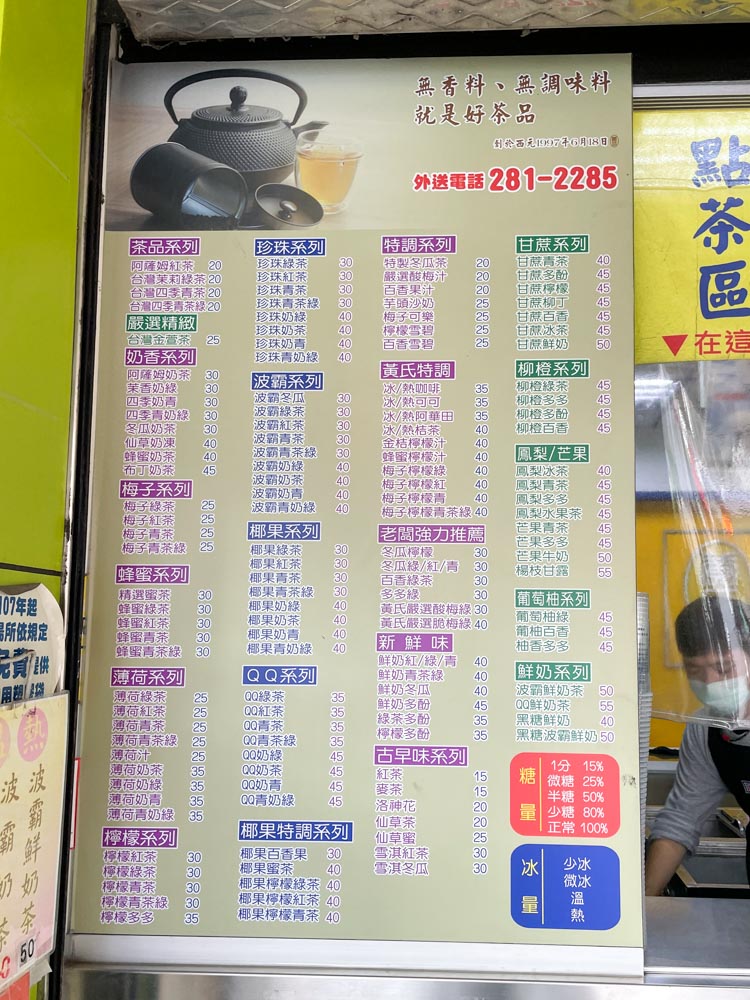 無香料、無調味料
就是好茶品
創於西元1997年6月18日
外送電話 281-2285
茶品系列
阿薩姆紅茶 20
台灣茉莉綠茶 20
台灣四季青茶 20
台灣四季青茶綠 20
嚴選精緻
台灣金萱茶 25
奶香系列
阿薩姆奶茶 30
茉香奶綠 30
四季奶青 30
四季青奶綠 30
冬瓜奶茶 30
仙草奶凍 40
蜂蜜奶茶 40
布丁奶茶 45
梅子系列
梅子綠茶 25
梅子紅茶 25
梅子青茶 25
梅子青茶綠 25
蜂蜜系列
精選蜜茶 30
蜂蜜綠茶 30
蜂蜜紅茶 30
蜂蜜青茶 30
蜂蜜青茶綠 30
薄荷系列
薄荷綠茶 25
薄荷紅茶 25
薄荷青茶 25
薄荷青茶綠 25
薄荷汁 25
薄荷奶茶 35
薄荷奶綠 35
薄荷奶青 35
薄荷青奶綠 35
檸檬系列
檸檬紅茶 30
檸檬綠茶 30
檸檬青茶 30
檸檬青茶綠 30
檸檬多多 35
珍珠系列
珍珠綠茶 30
珍珠紅茶 30
珍珠青茶 30
珍珠青茶綠 30
珍珠奶綠 40
珍珠奶茶 40
珍珠奶青 40
珍珠青奶綠 40
波霸系列
波霸冬瓜 30
波霸綠茶 30
波霸紅茶 30
波霸青茶 30
波霸青茶綠 30
波霸奶綠 40
波霸奶茶 40
波霸奶青 40
波霸青奶綠 40
椰果系列
椰果綠茶 30
椰果紅茶 30
椰果青茶 30
椰果青茶綠 30
椰果奶綠 40
椰果奶茶 40
椰果奶青 40
椰果青奶綠 40
QQ系列
QQ綠茶 35
QQ紅茶 35
QQ青茶 35
QQ青茶綠 35
QQ奶綠 45
QQ奶茶 45
QQ奶青 45
QQ青奶綠 45
椰果特調系列
椰果百香果 30
椰果蜜茶 40
椰果檸檬綠茶 40
椰果檸檬紅茶 40
椰果檸檬青茶 40
特調系列
特製冬瓜茶 20
嚴選酸梅汁 20
百香果汁 20
芋頭沙奶 25
梅子可樂 25
檸檬雪碧 25
百香雪碧 25
黃氏特調
冰/熱咖啡 35
冰/熱可可 35
冰/熱阿華田 35
冰/熱桔茶 40
金桔檸檬汁 40
蜂蜜檸檬汁 40
梅子檸檬綠 40
梅子檸檬紅 40
梅子檸檬青 40
梅子檸檬青茶綠 40
老闆強力推薦
冬瓜檸檬 30
冬瓜綠/紅/青 30
百香綠茶 30
多多綠 30
黃氏嚴選酸梅綠 30
黃氏嚴選脆梅綠 40
新鮮味
鮮奶紅/綠/青 40
鮮奶青茶綠 40
鮮奶冬瓜 40
鮮奶多酚 45
綠茶多酚 35
檸檬多酚 35
古早味系列
紅茶 15
麥茶 15
洛神花 20
仙草茶 20
仙草蜜 25
雪淇紅茶 30
雪淇冬瓜 30
甘蔗系列
甘蔗青茶 40
甘蔗多酚 45
甘蔗檸檬 45
甘蔗柳丁 45
甘蔗百香 45
甘蔗冰茶 45
甘蔗鮮奶 50
柳橙系列
柳橙綠茶 45
柳橙多多 45
柳橙多酚 45
柳橙百香 45
鳳梨/芒果
鳳梨冰茶 40
鳳梨青茶 45
鳳梨多多 45
鳳梨水果茶 45
芒果青茶 45
芒果多多 45
芒果牛奶 50
楊枝甘露 55
葡萄柚系列
葡萄柚綠 45
葡柚百香 45
柚香多多 45
鮮奶系列
波霸鮮奶茶 50
QQ鮮奶茶 55
黑糖鮮奶 40
黑糖波霸鮮奶 50
糖量
1分 15%
微糖 25%
半糖 50%
少糖 80%
正常 100%
冰量
少冰
微冰
溫
熱
點茶區
▼在這
07年起
場所依規定
免費提供
熱
波霸鮮奶茶
50
波霸奶茶